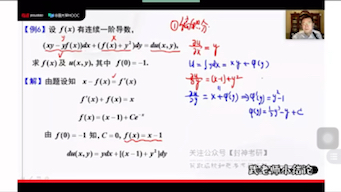 【例6】设 f(x) 有连续一阶导数,
(xy − yf(x))dx + (f(x) + y²)dy = du(x,y),
求 f(x) 及 u(x,y), 其中 f(0) = −1.
【解】由题设知 x − f(x) = f′(x)
f′(x) + f(x) = x
f(x) = (x−1) + Ce⁻ˣ
由 f(0) = −1 知, C = 0, f(x) = x−1
du(x,y) = ydx + [(x−1) + y²]dy
∂u/∂x = y
u = ∫ydx = xy + φ(y)
∂u/∂y = (x−1) + y²
∂u/∂y = x + φ′(y) ⇒ φ′(y) = y² − 1
φ(y) = ⅓y³ − y + C
关注公众号【封神考研】